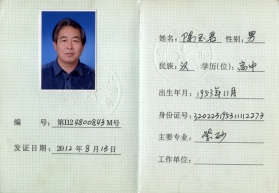 编　　号：第1124800843M号
发证日期：2012年8月15日
姓名：陈玉君 性别：男
民族：汉 学历(位)：高中
出生年月：1953年11月
身份证号：320223195311112273
主要专业：紫砂
工作单位：